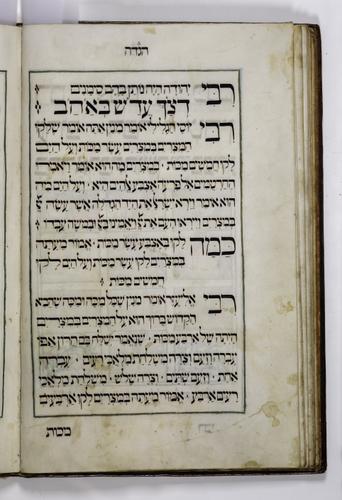 הגדה
רבי יהודה היה נותן בהם סימנים
דצך עדש באחב
רבי יוסי הגלילי אומר מנין אתה אומר שלקו
המצרים במצרים עשר מכות ועל הים
לקו חמשים מכות במצרים מה הוא אומר ויאמרו
החרטומים אל פרעה אצבע אלהים היא ועל הים מה
הוא אומר וירא ישראל את היד הגדולה אשר עשה
במצרים וייראו העם את ויאמינו ובמשה עבדו
כמה לקו באצבע עשר מכות אמור מעתה
במצרים לקו עשר מכות ועל הים לקו
חמשים מכות
רבי אליעזר אומר מנין שכל מכה ומכה שהביא
הקדוש ברוך הוא על המצרים במצרים
היתה של ארבע מכות שנאמר ישלח בם חרון אפו
עברה וזעם וצרה משלחת מלאכי רעים עברה
אחת וזעם שתים וצרה שלש משלחת מלאכי
רעים ארבע אמור מעתה במצרים לקו ארבעים
מכות